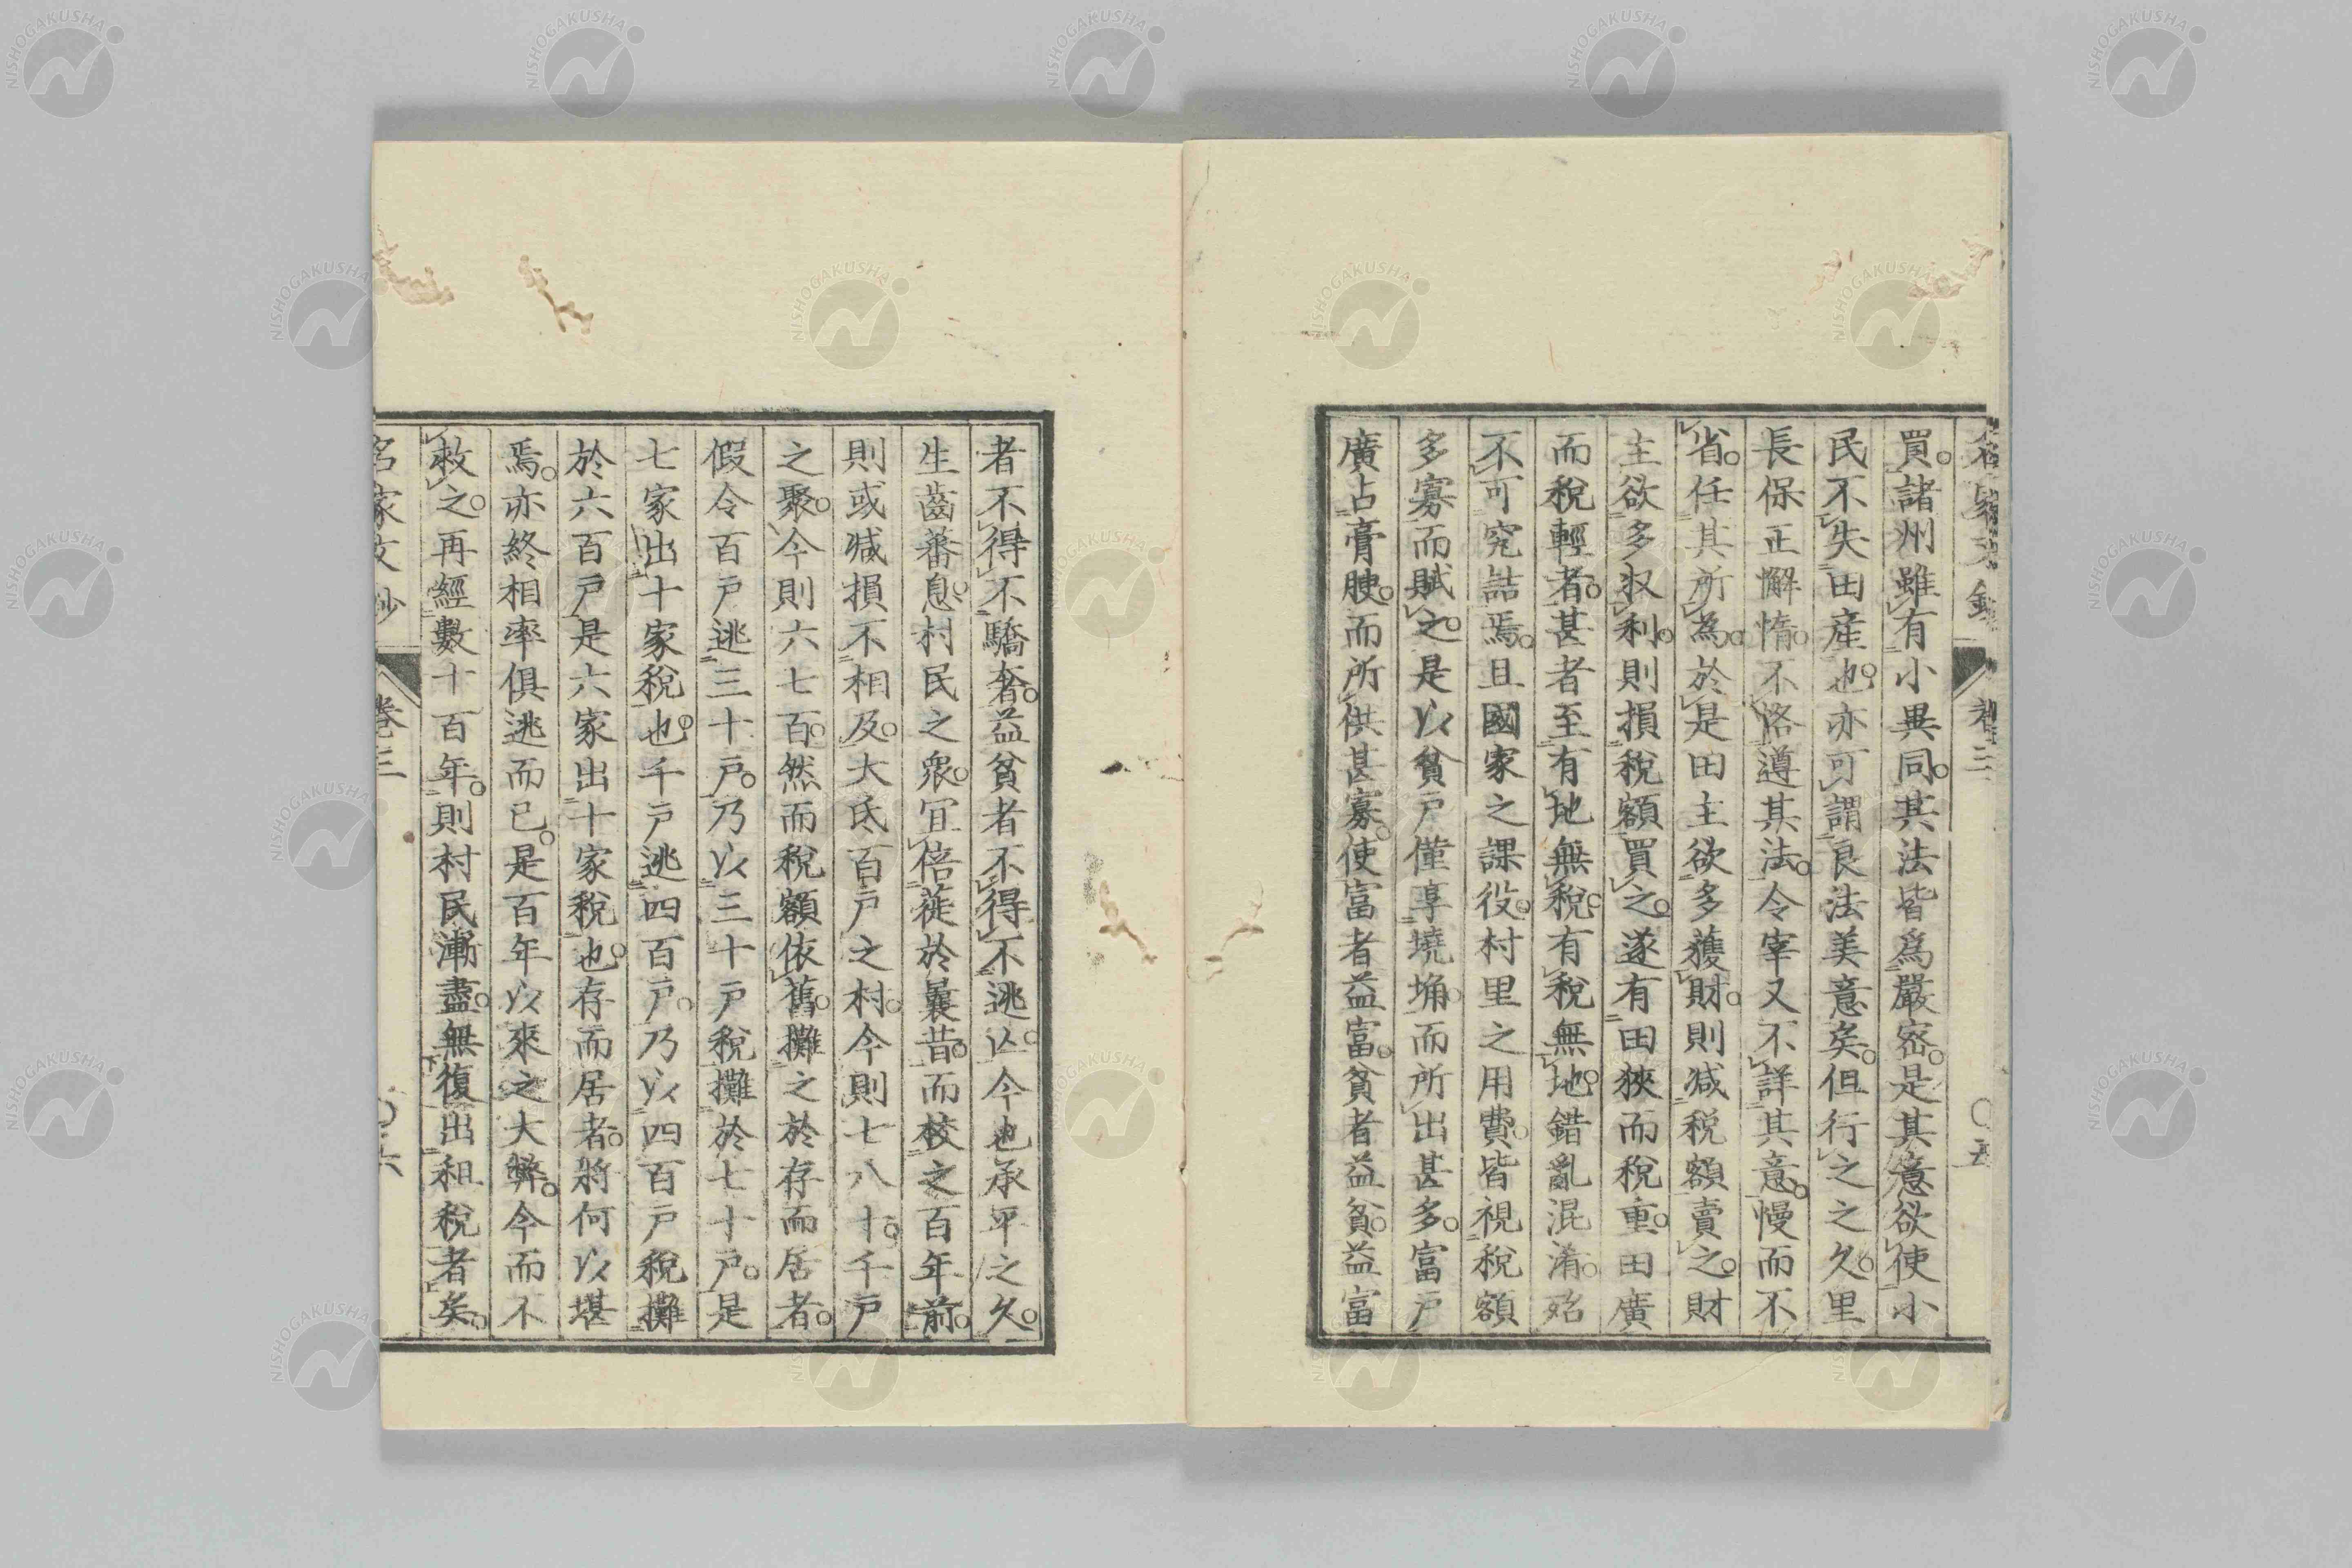 名家文鈔
卷三
〇五
買。諸州雖有小異同。其法皆爲嚴密。是其意欲使小
民不失田產也。亦可謂良法美意矣。但行之之久。里
長保正懈惰。不恪遵其法。令宰又不詳其意。慢而不
省。任其所為。於是田主欲多獲財。則減税額賣之。財
主欲多収利。則損税額買之。遂有田狹而税重。田廣
而税輕者。甚者至有地無税。有税無地。錯亂混淆。殆
不可究詰焉。且國家之課役。村里之用費。皆視税額
多寡而賦之。是以貧戸僅享墝埆。而所出甚多。富戸
廣占膏腴。而所供甚寡。使富者益富。貧者益貧。益富
者不得不驕奢。益貧者不得不逃亾。今也承平之久。
生齒蕃息。村民之衆。宜倍蓰於曩昔。而校之百年前。
則或減損不相及。大氐百戸之村。今則七八十。千戸
之聚。今則六七百。然而税額依舊。攤之於存而居者。
假令百戸逃三十戸。乃以三十戸税攤於七十戸。是
七家出十家税也。千戸逃四百戸。乃以四百戸税攤
於六百戸。是六家出十家税也。存而居者。將何以堪
焉。亦終相率俱逃而已。是百年以來之大弊。今而不
救之。再經數十百年。則村民漸盡。無復出租税者矣。
名家文鈔
卷三
〇六
NISHOGAKUSHA